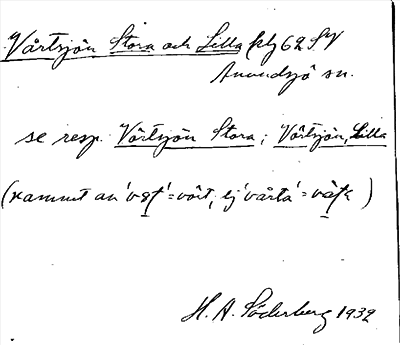 Vårtsjön Stora och Lilla 62 SV
Anundsjö sn.
se resp. Vörtsjön Stora; Vörtsjön, Lilla
(namnet av 'vört'; ej 'vårta' )
H. A. Söderberg 1932